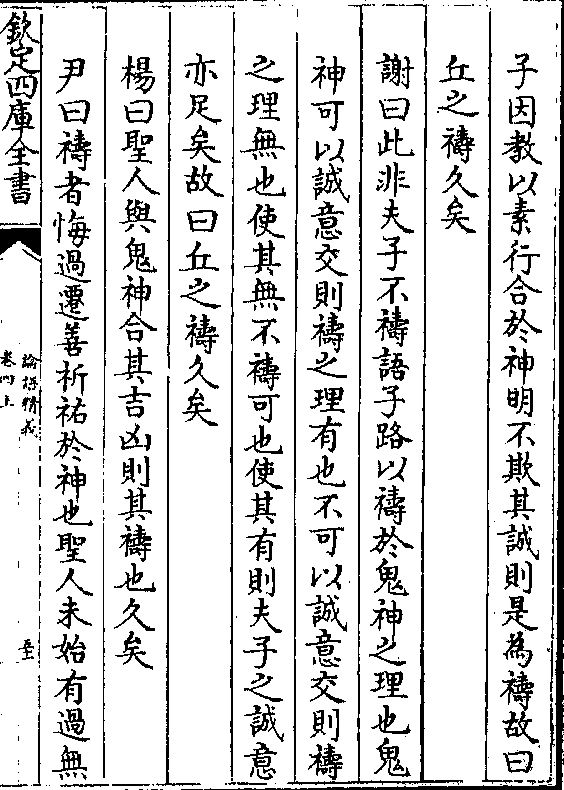 子因教以素行合於神明不欺其誠則是為禱故曰
丘之禱久矣
謝曰此非夫子不禱語子路以禱於鬼神之理也鬼
神可以誠意交則禱之理有也不可以誠意交則禱
之理無也使其無不禱可也使其有則夫子之誠意
亦足矣故曰丘之禱久矣
楊曰聖人與鬼神合其吉凶則其禱也久矣
尹曰禱者悔過遷善祈祐於神也聖人未始有過無
欽定四庫全書
論語精義
卷四上